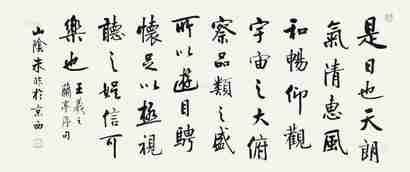 是日也天朗
氣清惠風
和暢仰觀
宇宙之大俯
察品類之盛
所以遊目騁
懷足以極視
聽之娛信可
樂也
王羲之
蘭亭序句
山陰朱
於京西